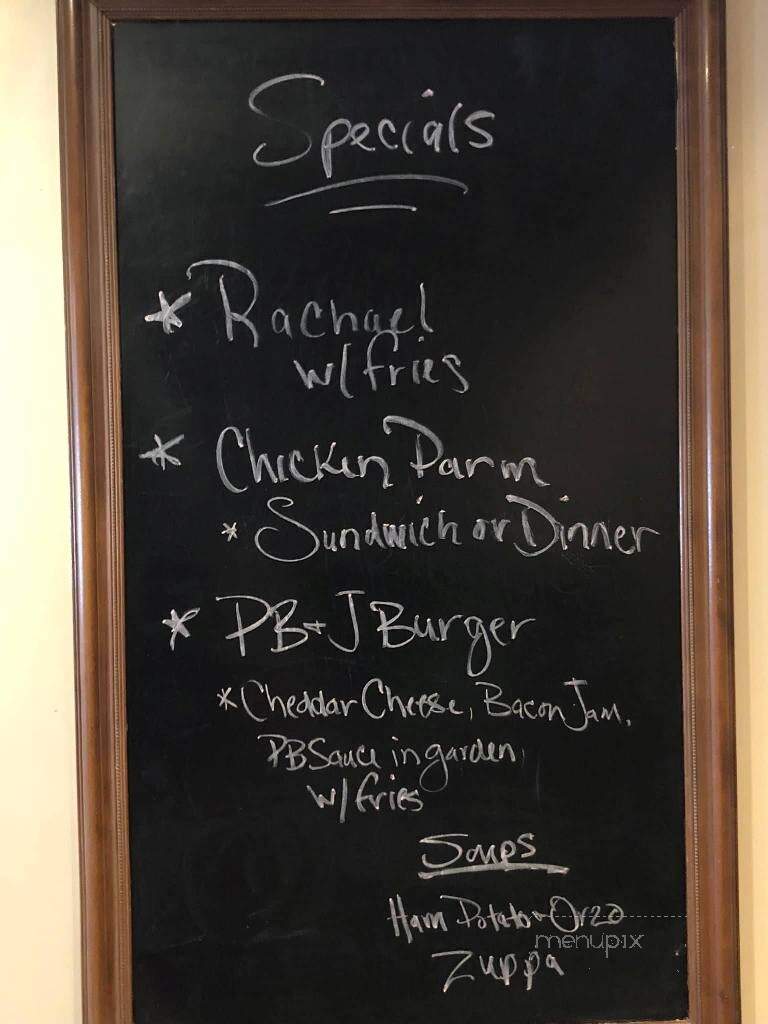 Specials
* Rachael
w/fries
* Chicken Parm
* Sundwich or Dinner
* PB+J Burger
* Cheddar Cheese, Bacon Jam,
PB Sauce in garden,
w/fries
Soups
Ham Potato + Orzo
menupix
Zuppa